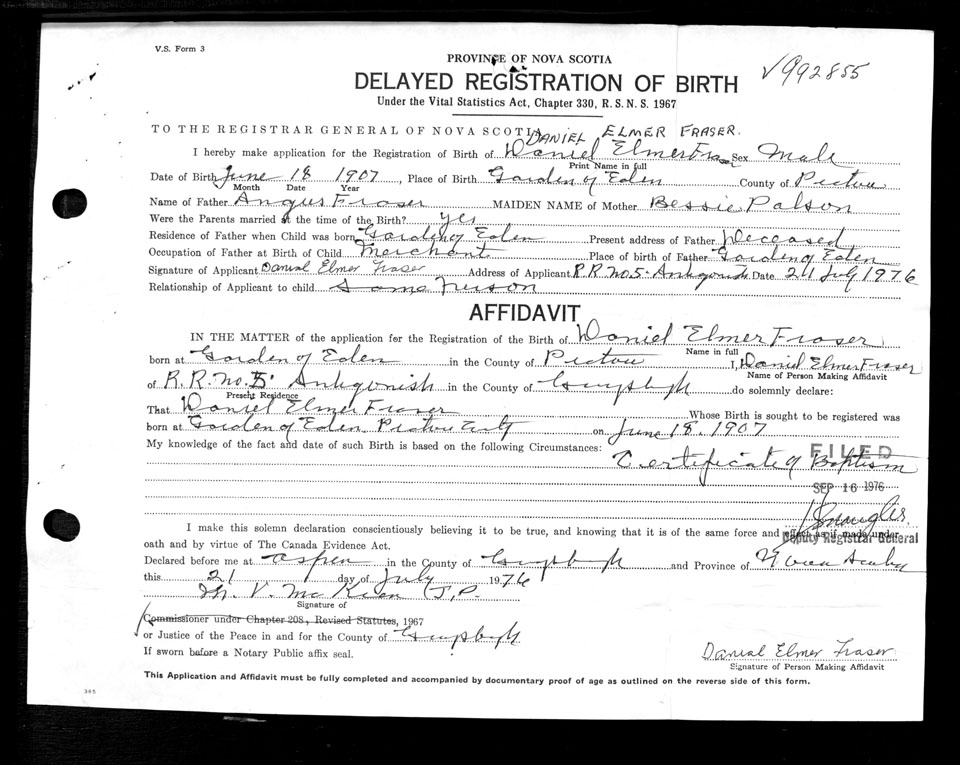 V.S. Form 3
PROVINCE OF NOVA SCOTIA
√992855
DELAYED REGISTRATION OF BIRTH
Under the Vital Statistics Act, Chapter 330, R. S. N. S. 1967
TO THE REGISTRAR GENERAL OF NOVA SCOTIA
DANIEL ELMER FRASER.
I hereby make application for the Registration of Birth of Daniel Elmer Fraser Sex Male
Print Name in full
Date of Birth June 18 1907, Place of Birth Garden of Eden County of Pictou
Month Date Year
Name of Father Angus Fraser MAIDEN NAME of Mother Bessie Palson
Were the Parents married at the time of the Birth? yes
Residence of Father when Child was born Garden of Eden Present address of Father Deceased
Occupation of Father at Birth of Child Merchant Place of birth of Father Garden of Eden
Signature of Applicant Danial Elmer Fraser Address of Applicant R.R. No 5. Antigonish Date 21 July 1976
Relationship of Applicant to child Same Person
AFFIDAVIT
IN THE MATTER of the application for the Registration of the Birth of Daniel Elmer Fraser
Name in full
born at Garden of Eden in the County of Pictou I, Daniel Elmer Fraser
Name of Person Making Affidavit
of R.R. No. 5. Antigonish in the County of Guysbgh do solemnly declare:
Present Residence
That Daniel Elmer Fraser Whose Birth is sought to be registered was
born at Garden of Eden Pictou Cnty on June 18. 1907
and
My knowledge of the fact and date of such Birth is based on the following Circumstances:
FILED
Certificate of Baptism
SEP 16 1976
I make this solemn declaration conscientiously believing it to be true, and knowing that it is of the same force and effect as if made under
Deputy Registrar General
oath and by virtue of The Canada Evidence Act.
Declared before me at Aspen in the County of Guysbgh and Province of Nova Scotia
this 21 day of July 1976
V. McKeen (J.P.
Signature of
Commissioner under Chapter 208, Revised Statutes, 1967
or Justice of the Peace in and for the County of Guysbgh
If sworn before a Notary Public affix seal.
Danial Elmer Fraser
Signature of Person Making Affidavit
This Application and Affidavit must be fully completed and accompanied by documentary proof of age as outlined on the reverse side of this form.